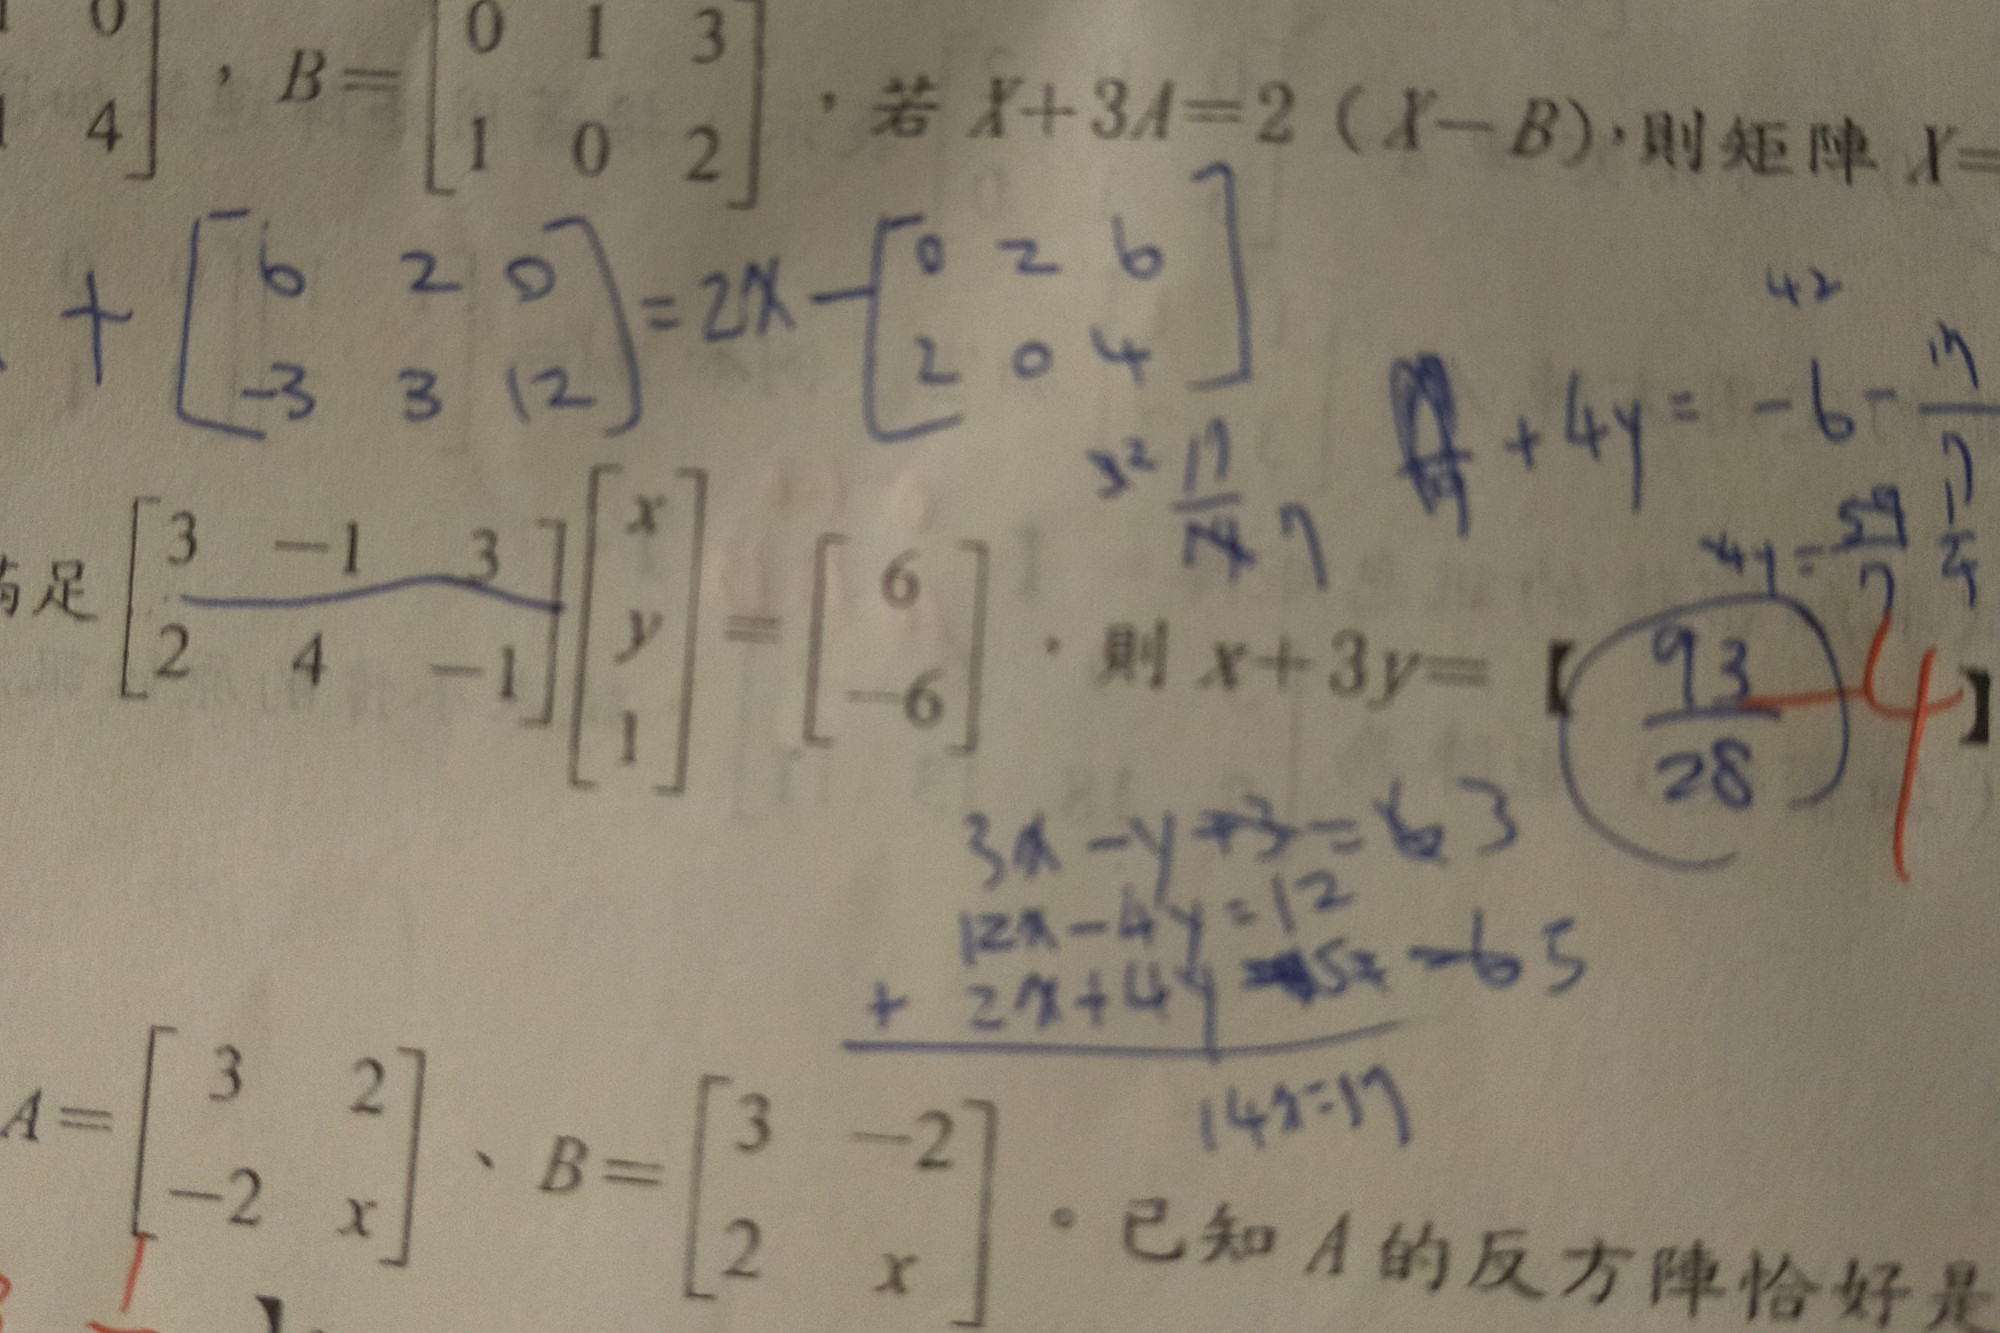 0
4 ，B= 0 1 3
1 0 2 ，若 X+3A=2（X−B），則矩陣 X=
+ 6 2 0
-3 3 12 =2X− 0 2 6
2 0 4
42
+4y = -6 - 17
7
17
7
4y = 59
7
足 3 −1 3
2 4 −1
x
y
1
=
6
−6
，則 x+3y=【 93
28 】
4
3x -y +3 = 6 3
12x-4y=12
+ 2x+4y = -6 5
14x=17
A= 3 2
−2 x 、B= 3 −2
2 x 。已知 A 的反方陣恰好是
】